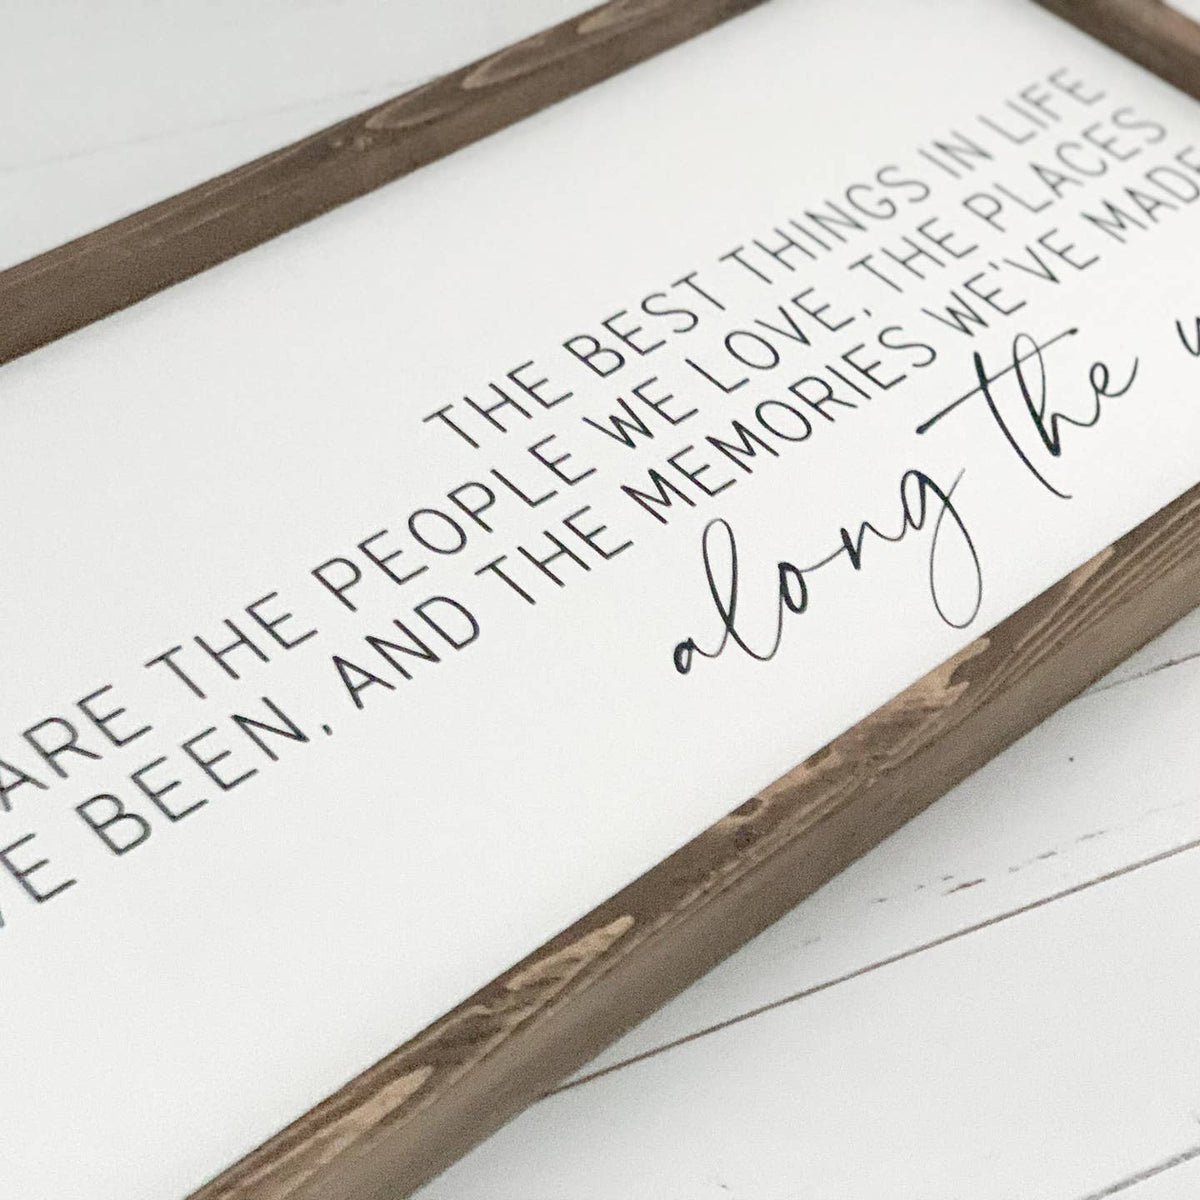 THE BEST THINGS IN LIFE
ARE THE PEOPLE WE LOVE, THE PLACES
BEEN, AND THE MEMORIES WE'VE MADE
along the